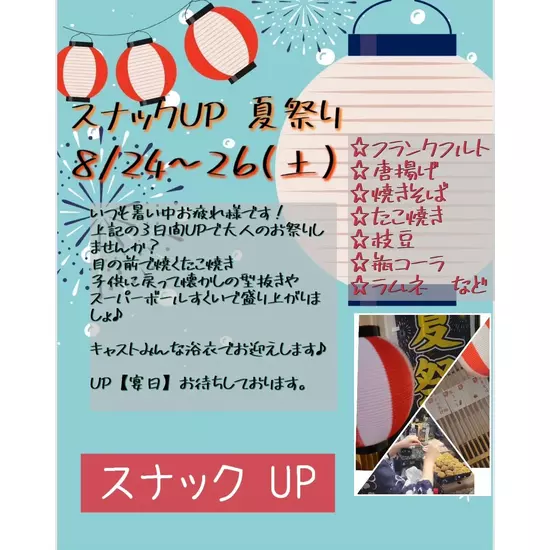 スナックUP 夏祭り
8/24〜26(土)
☆フランクフルト
☆唐揚げ
☆焼きそば
☆たこ焼き
☆枝豆
☆瓶コーラ
☆ラムネ など
いつも暑い中お疲れ様です！
上記の3日間UPで大人のお祭りし
ませんか？
目の前で焼くたこ焼き
子供に戻って懐かしの型抜きや
スーパーボールすくいで盛り上がりま
しょ♪
キャストみんな浴衣でお迎えします♪
UP【宴日】お待ちしております。
夏祭
スナック UP